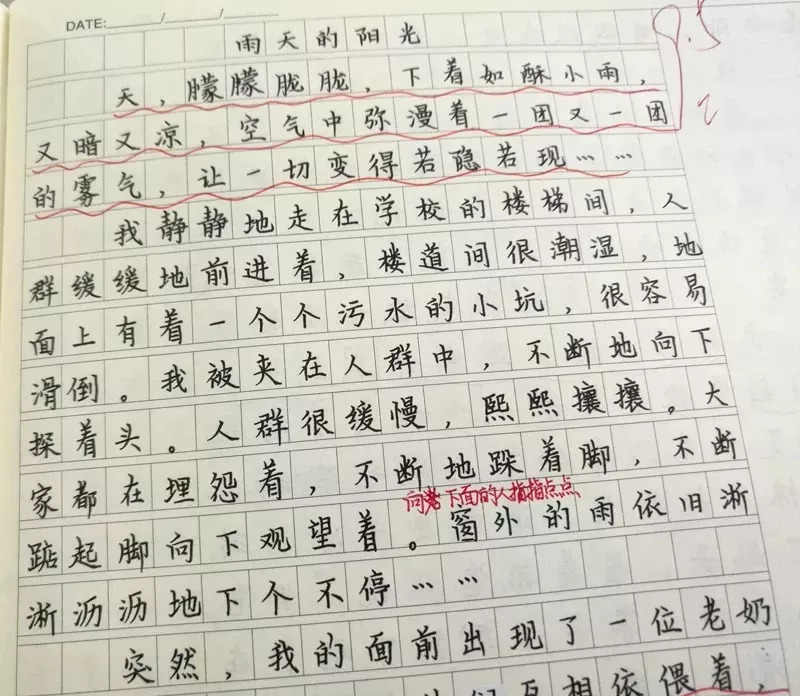 DATE: / /
雨天的阳光
9.5
天，朦朦胧胧，下着如酥小雨，
又暗又凉，空气中弥漫着一团又一团
的雾气，让一切变得若隐若现……
我静静地走在学校的楼梯间，人
群缓缓地前进着，楼道间很潮湿，地
面上有着一个个污水的小坑，很容易
滑倒。我被夹在人群中，不断地向下
探着头。人群很缓慢，熙熙攘攘。大
家都在埋怨着，不断地跺着脚，不断
向着下面的人指指点点
踮起脚向下观望着。窗外的雨依旧淅
淅沥沥地下个不停……
突然，我的面前出现了一位老奶
们互相依偎着，